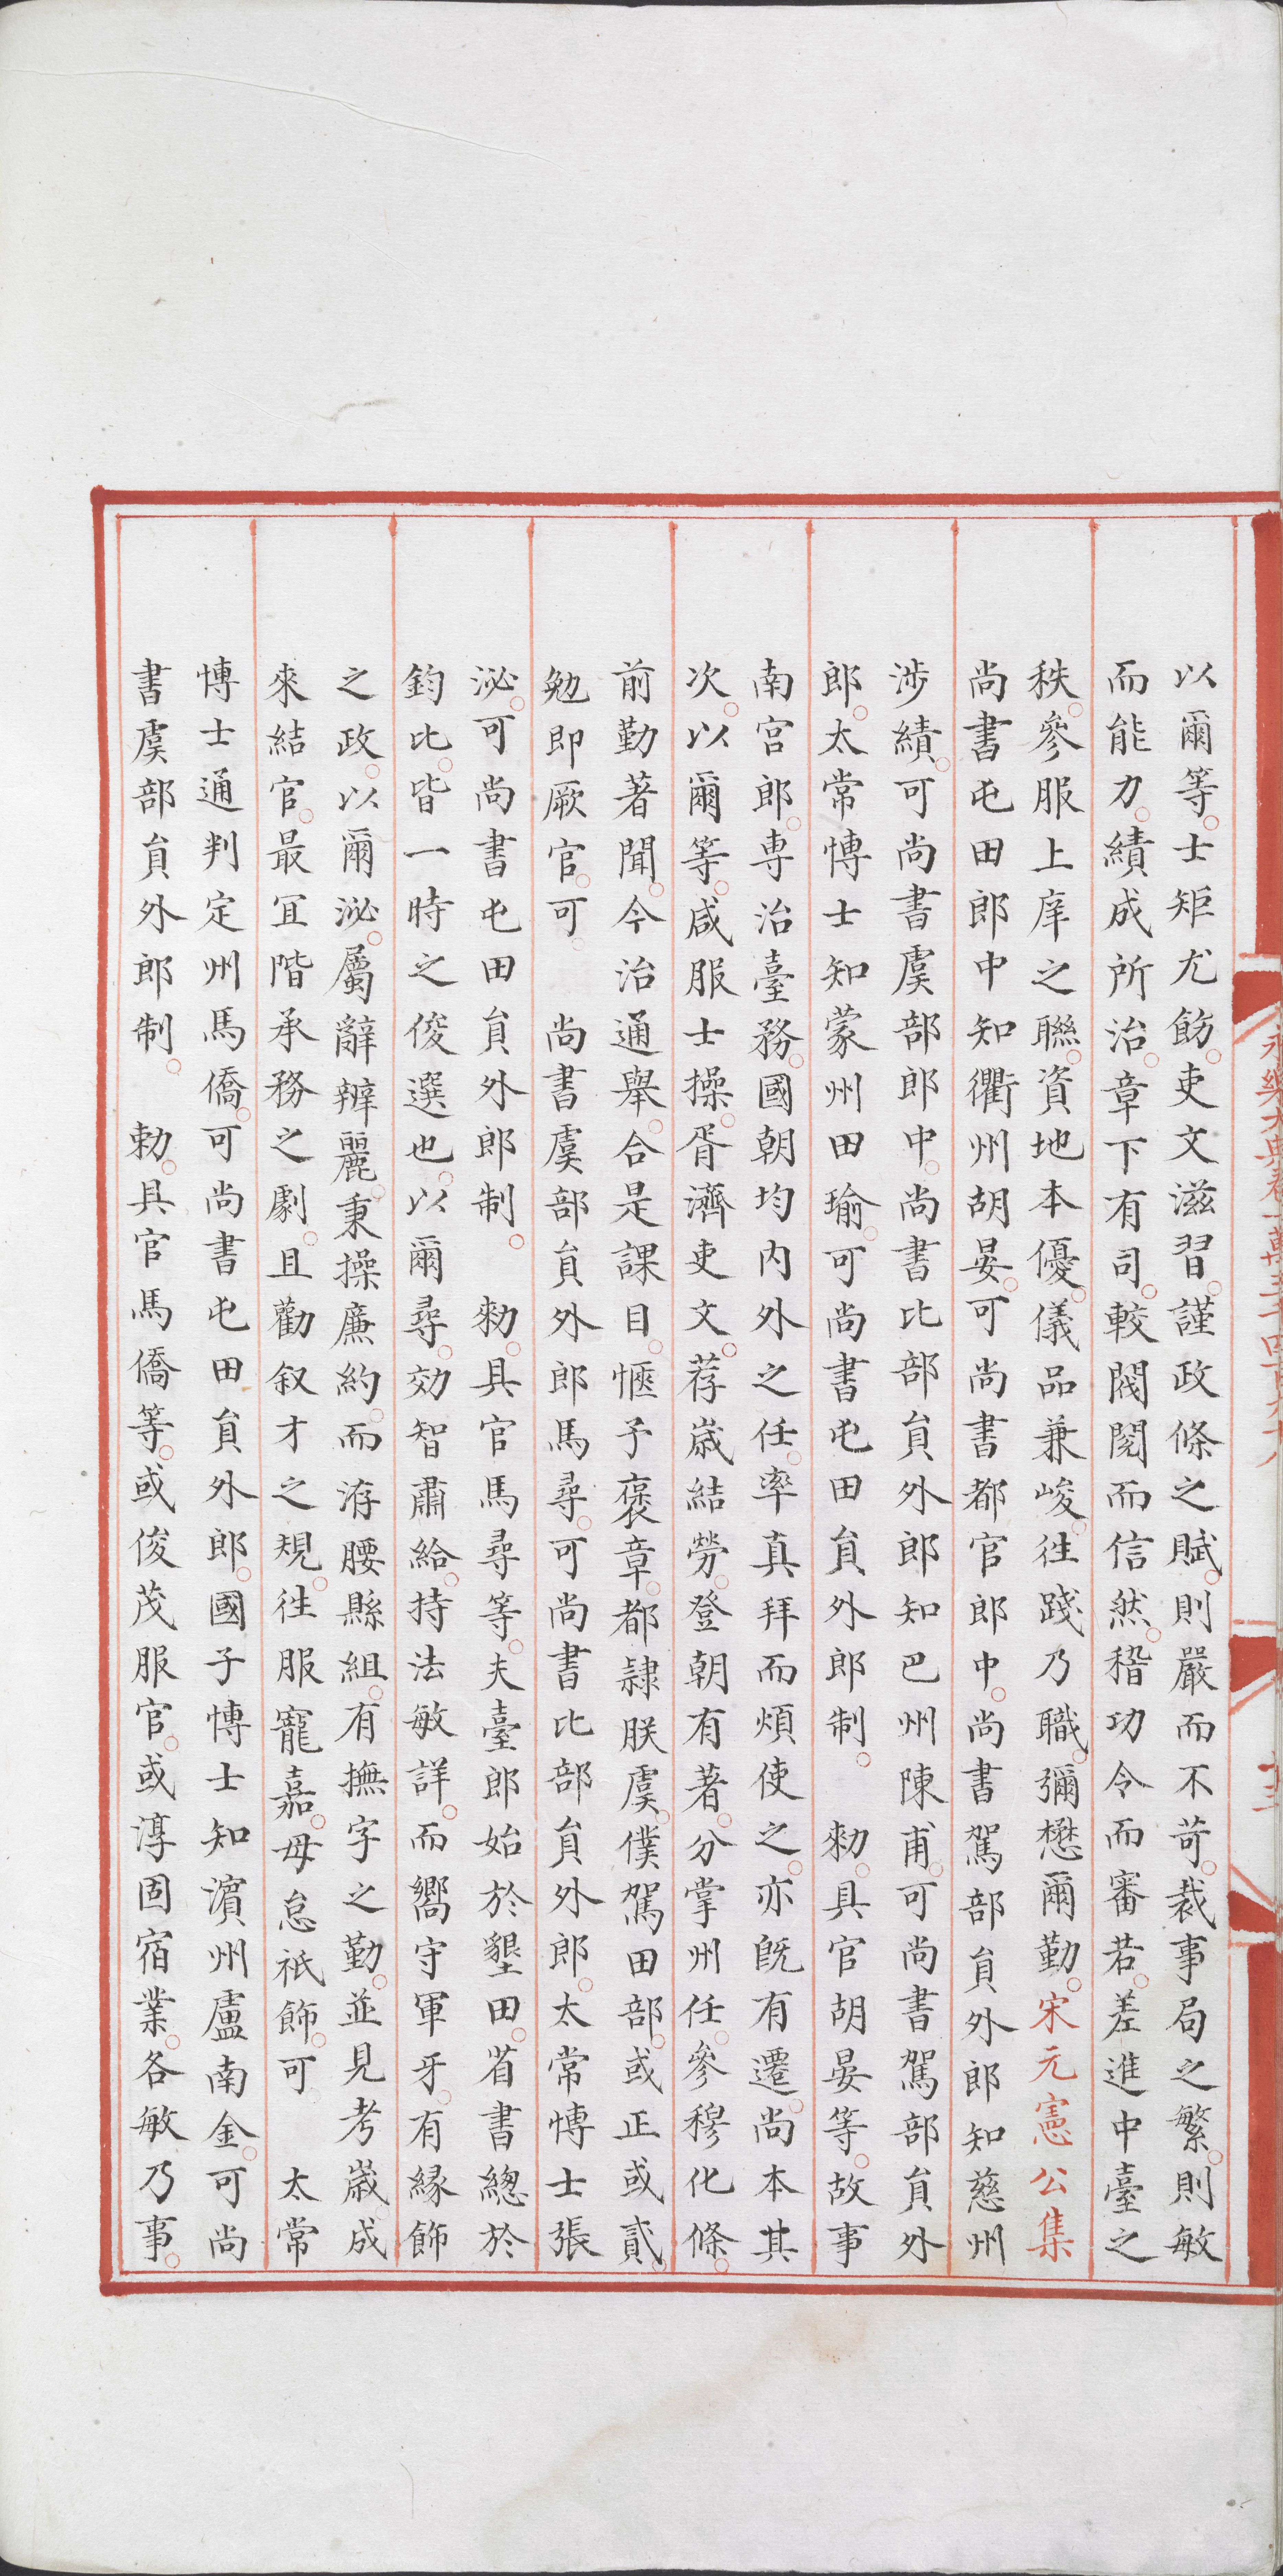 以爾等。士矩尤飭。吏文滋習。謹政條之賦。則嚴而不苛。裁事局之繁。則敏
而能力。績成所治。章下有司。較閥閱而信然。稽功令而審若。差進中臺之
秩。參服上庠之聯。資地本優。儀品兼峻。往踐乃職。彌懋爾勤。宋元憲公集
尚書屯田郎中知衢州胡晏。可尚書都官郎中。尚書駕部員外郎知慈州
涉績。可尚書虞部郎中。尚書比部員外郎知巴州陳甫。可尚書駕部員外
郎。太常愽士知蒙州田瑜。可尚書屯田員外郎制。 勑。具官胡晏等。故事
南宫郎。專治臺務。國朝均内外之任。率真拜而煩使之。亦既有遷。尚本其
次。以爾等。咸服士操。胥濟吏文。荐歲結勞。登朝有著。分掌州任。參穆化條。
前勤著聞。今治通舉。合是課目。愜予褒章。都隷朕虞。僕駕田部。或正或貳。
勉即厥官。可 尚書虞部員外郎馬尋。可尚書比部員外郎。太常愽士張
泌。可尚書屯田員外郎制。 勑。具官馬尋等。夫臺郎始於墾田。省書總於
鈞比。皆一時之俊選也。以爾尋。効智肅給。持法敏詳。而嚮守軍牙。有緣飾
之政。以爾泌。屬辭辧麗。秉操廉約。而洊腰縣組。有撫字之勤。並見考歲。成
來結官。最冝階承務之劇。且勸叙才之規。往服寵嘉。毋怠祇飾。可 太常
愽士通判定州馬僑。可尚書屯田員外郎。國子愽士知濵州盧南金。可尚
書虞部員外郎制。 勑。具官馬僑等。或俊茂服官。或淳固宿業。各敏乃事。
永樂大典卷一萬三千四百九十八
十三